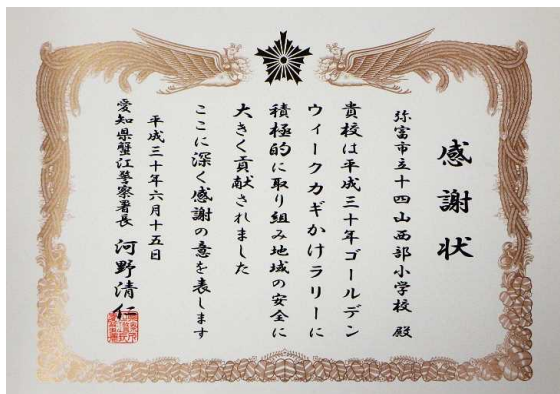 感謝状
弥富市立十四山西部小学校 殿
貴校は平成三十年ゴールデン
ウィークカギかけラリーに
積極的に取り組み地域の安全に
大きく貢献されました
ここに深く感謝の意を表します
平成三十年六月十五日
愛知県蟹江警察署長 河野清仁